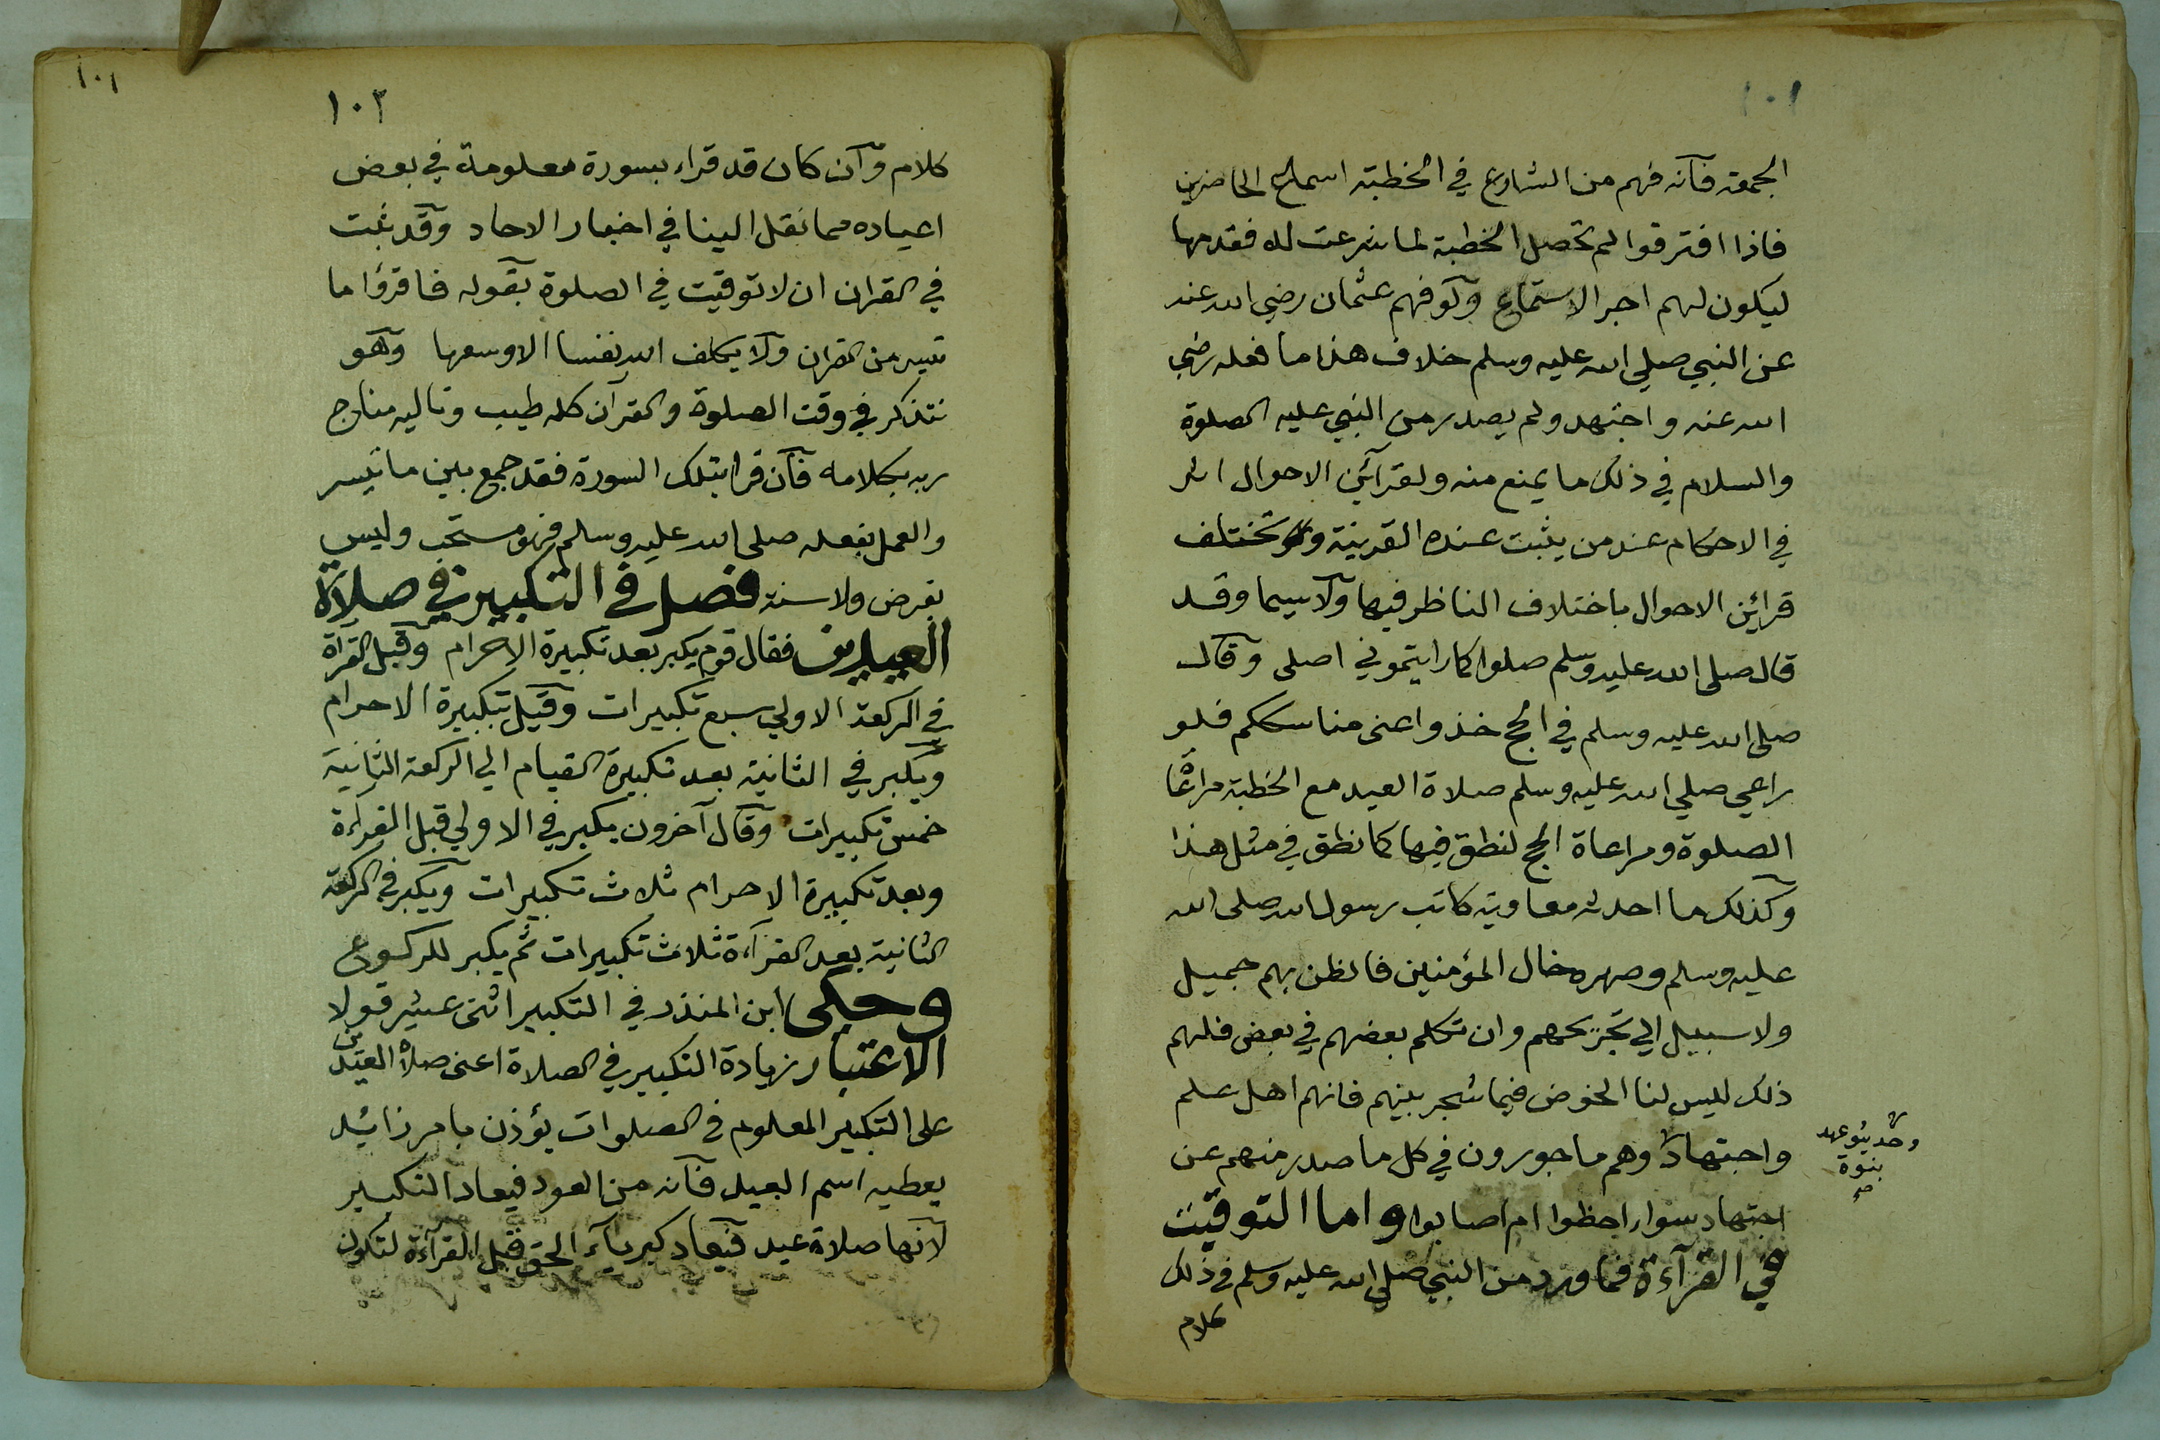 ١٠١
الجمعة فآنه فهم من الشارع في الخطبة اسماع الحاضرين
فاذا افترقوا لم تحصل الخطبة لما شرعت له فقدمها
ليكون لهم اجر الاستماع ولو فهم عثمان رضي الله عنه
عن النبي صلي الله عليه وسلم خلاف هذا ما فعله رضي
الله عنه واجتهد ولم يصدر من النبي عليه الصلوة
والسلام في ذلك ما يمنع منه ولقرآئن الاحوال اثر
في الاحكام عند من يثبت عنده القرينة وتختلف
قرائن الاحوال باختلاف الناظر فيها ولا سيما وقد
قال صلى الله عليه وسلم صلوا كما رايتموني اصلي وقال
صلى الله عليه وسلم في الحج خذوا عني مناسككم فلو
راعي صلي الله عليه وسلم صلاة العيد مع الخطبة مراعاة
الصلوة ومراعاة الحج لنطق فيها كما نطق في مثل هذا
وكذلك ما احدثه معاوية كاتب رسول الله صلى الله
عليه وسلم وصهره خال المؤمنين فالظن بهم جميل
ولا سبيل الي تجريحهم وان تكلم بعضهم في بعض فلهم
ذلك ليس لنا الخوض فيما شجر بينهم فانهم اهل علم
واجتهاد وهم ماجورون في كل ما صدر منهم عن
اجتهاد سواء اخطوا ام اصابوا واما التوقيت
في القرآءة فما ورد من النبي صلي الله عليه وسلم في ذلك
كلام
بنوة
١٠١
١٠٢
كلام وآن كان قد قراء بسورة معلومة في بعض
اعياده مما نقل الينا في اخبار الاحاد وقد ثبت
في القران ان لا توقيت في الصلوة بقوله فاقرؤا ما
تيسر من القران ولا يكلف الله نفسا الا وسعها وهو
نتذكر في وقت الصلوة والقرآن كله طيب وتاليه مناج
ربه بكلامه فآن قرا بتلك السورة فقد جمع بين ما تيسر
والعمل بفعله صلى الله عليه وسلم فهو مستحب وليس
بفرض ولا سنة فصل في التكبير في صلاة
العيدين فقال قوم يكبر بعد تكبيرة الاحرام وقبل القرآة
في الركعة الاولي سبع تكبيرات وقيل بتكبيرة الاحرام
ويكبر في الثانية بعد تكبيرة القيام الي الركعة الثانية
خمس تكبيرات وقال آخرون يكبر في الاولي قبل القراءة
وبعد تكبيرة الاحرام ثلاث تكبيرات ويكبر في الركعة
الثانية بعد القرآءة ثلاث تكبيرات ثم يكبر للركوع
وحكى ابن المنذر في التكبير اثنى عشر قولا
الاعتبار زيادة التكبير في الصلاة اعنى صلاة العيدين
على التكبير المعلوم في الصلوات يؤذن بامر زائد
يعطيه اسم العيد فآنه من العود فيعاد التكبير
لآنها صلاة عيد فيعاد كبريآء الحق قبل القرآءة لتكون